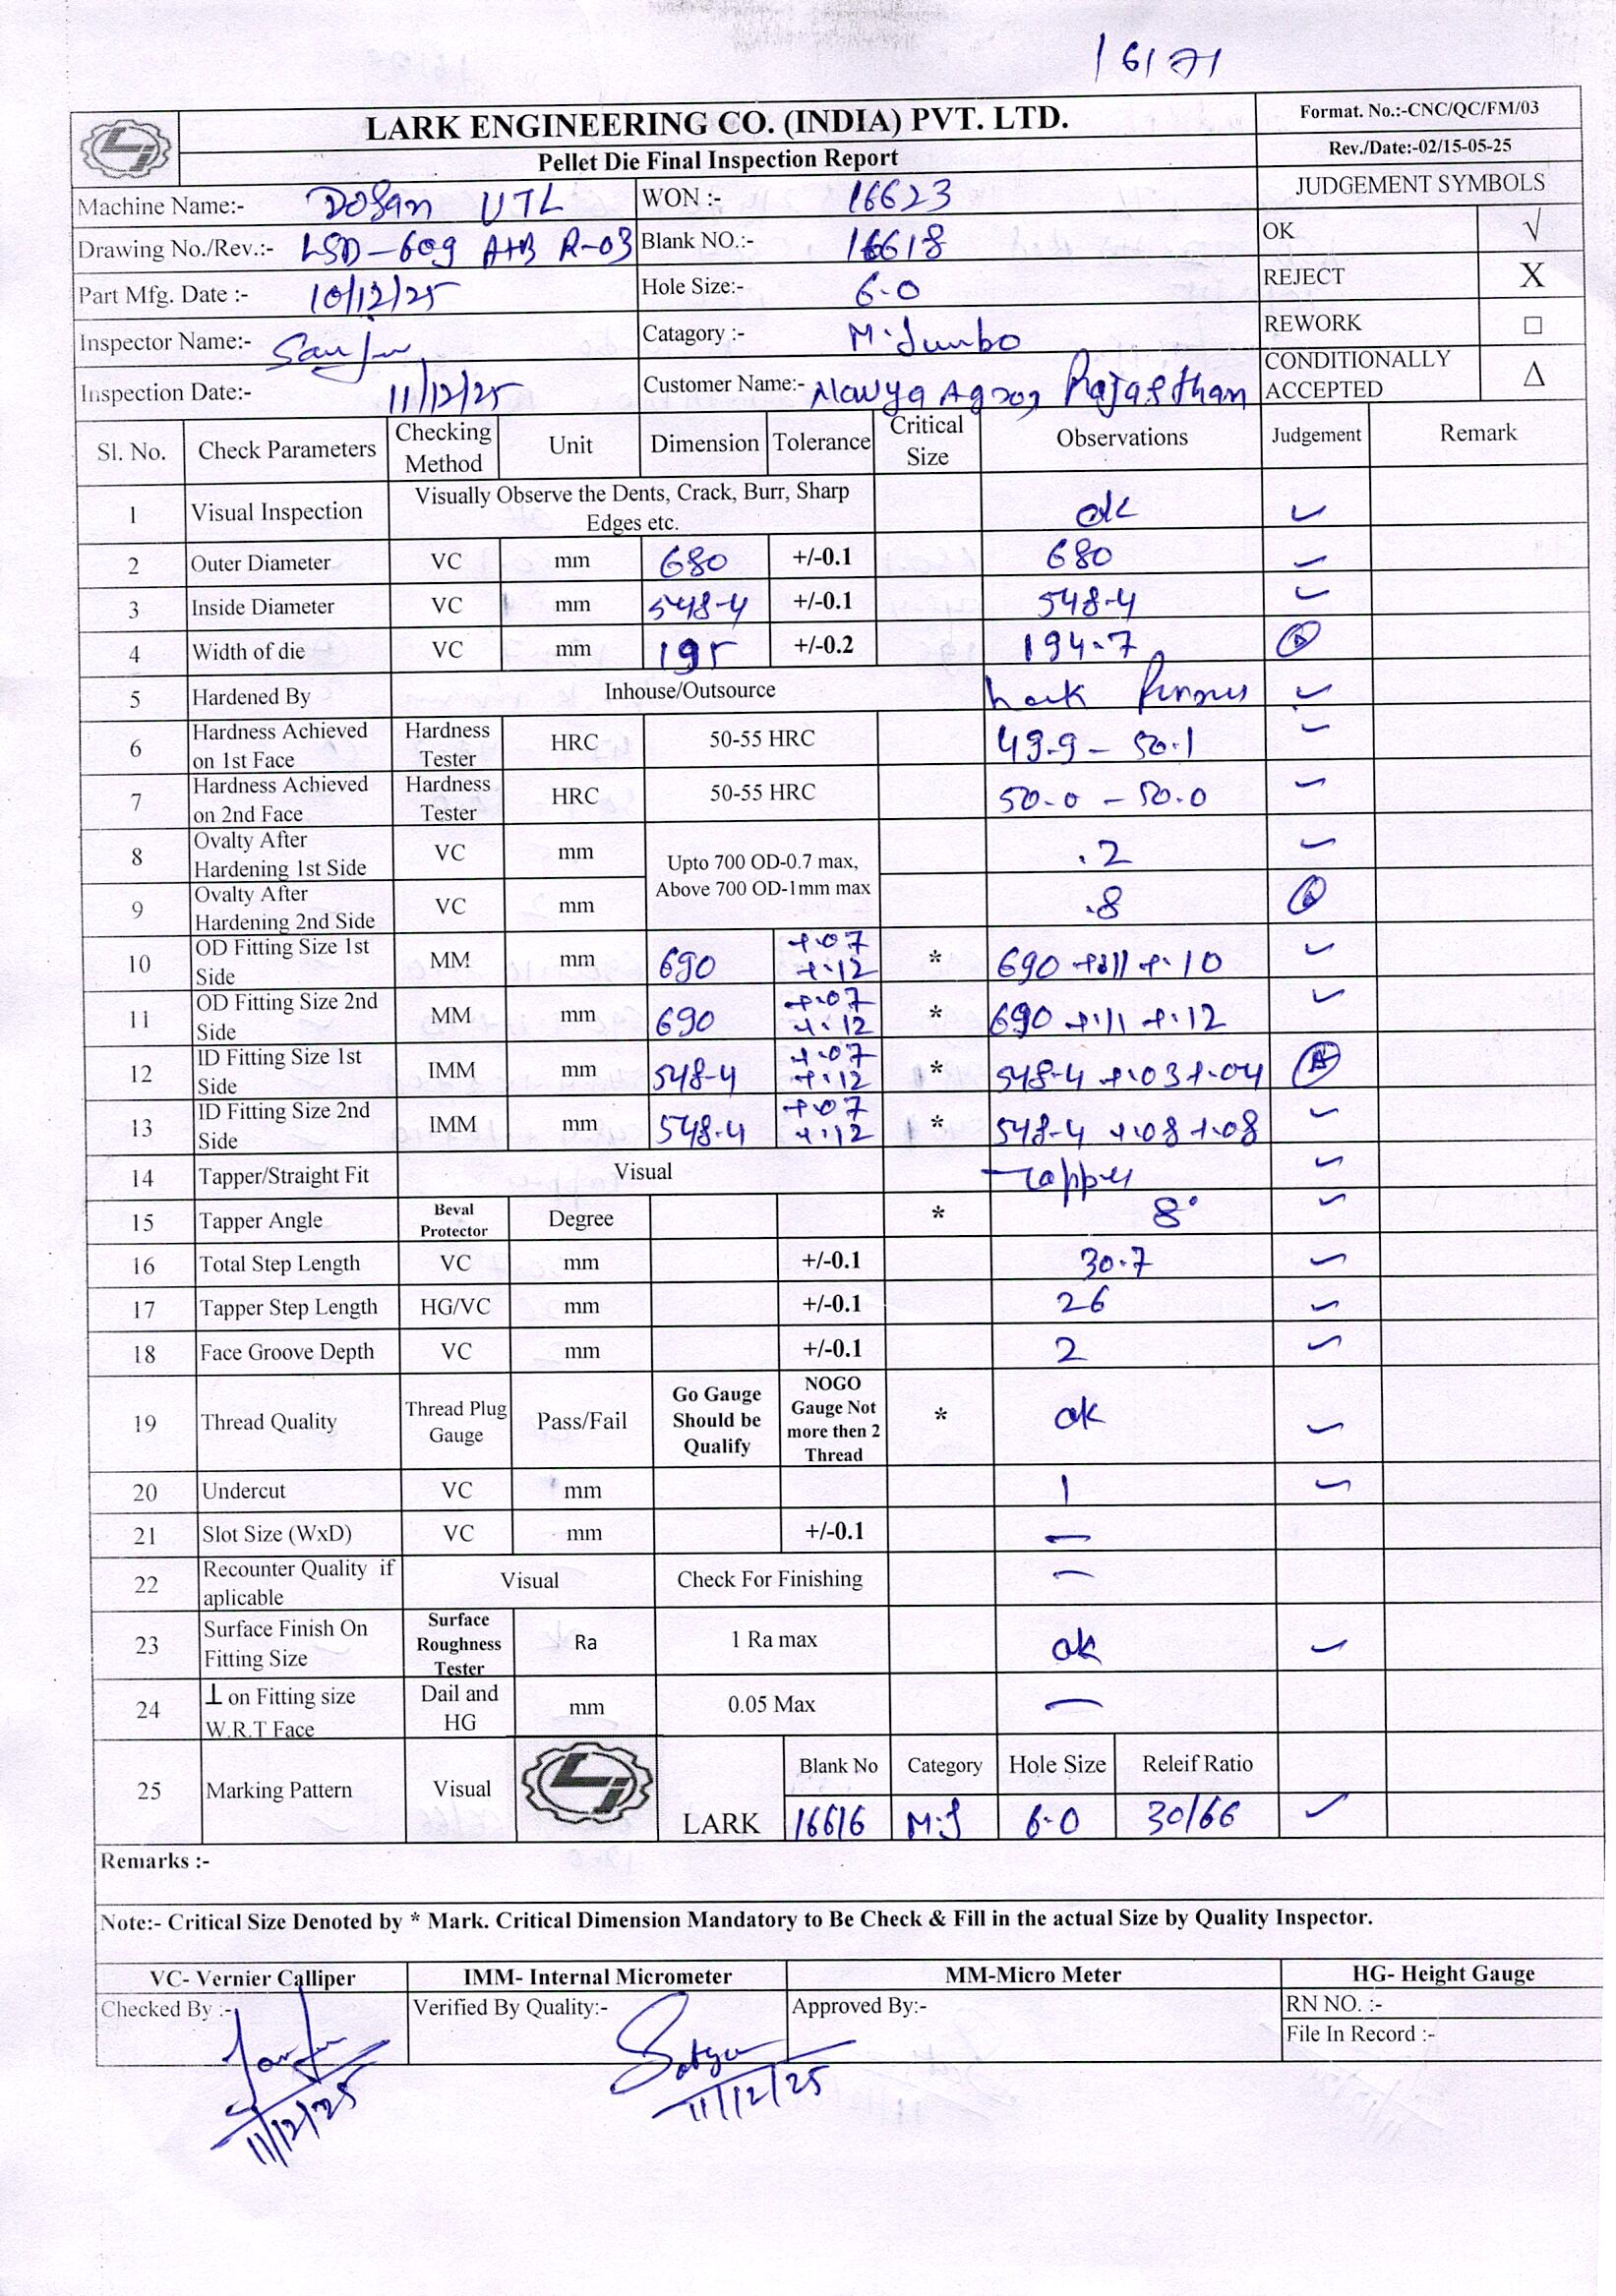 16171
LARK ENGINEERING CO. (INDIA) PVT. LTD.
Pellet Die Final Inspection Report
Format. No.:-CNC/QC/FM/03
Rev./Date:-02/15-05-25
Machine Name:- DOSan UTL WON :- 16623 JUDGEMENT SYMBOLS
Drawing No./Rev.:- LSD-609 A+B R-03 Blank NO.:- 16618 OK √
Part Mfg. Date :- 10/12/25 Hole Size:- 6.0 REJECT X
Inspector Name:- Sanju Catagory :- M.Jumbo REWORK □
Inspection Date:- 11/12/25 Customer Name:- Rajasthan CONDITIONALLY ACCEPTED Δ
Sl. No. Check Parameters Checking Method Unit Dimension Tolerance Critical Size Observations Judgement Remark
1 Visual Inspection Visually Observe the Dents, Crack, Burr, Sharp Edges etc. ok ✓
2 Outer Diameter VC mm 680 +/-0.1 680 ✓
3 Inside Diameter VC mm 548.4 +/-0.1 548.4 ✓
4 Width of die VC mm 195 +/-0.2 194.7
5 Hardened By Inhouse/Outsource ✓
6 Hardness Achieved on 1st Face Hardness Tester HRC 50-55 HRC 49.9 - 50.1 ✓
7 Hardness Achieved on 2nd Face Hardness Tester HRC 50-55 HRC 50.0 - 50.0 ✓
8 Ovalty After Hardening 1st Side VC mm Upto 700 OD-0.7 max, Above 700 OD-1mm max .2 ✓
9 Ovalty After Hardening 2nd Side VC mm .8
10 OD Fitting Size 1st Side MM mm 690 +.07 +.12 * 690 +.11 +.10 ✓
11 OD Fitting Size 2nd Side MM mm 690 +.07 +.12 * 690 +.11 +.12 ✓
12 ID Fitting Size 1st Side IMM mm 548.4 +.07 +.12 * 548.4 +.03 +.04
13 ID Fitting Size 2nd Side IMM mm 548.4 +.07 +.12 * 548.4 +.08 +.08 ✓
14 Tapper/Straight Fit Visual Tapper ✓
15 Tapper Angle Beval Protector Degree * 8° ✓
16 Total Step Length VC mm +/-0.1 30.7 ✓
17 Tapper Step Length HG/VC mm +/-0.1 26 ✓
18 Face Groove Depth VC mm +/-0.1 2 ✓
19 Thread Quality Thread Plug Gauge Pass/Fail Go Gauge Should be Qualify NOGO Gauge Not more then 2 Thread * ok ✓
20 Undercut VC mm 1 ✓
21 Slot Size (WxD) VC mm +/-0.1 —
22 Recounter Quality if aplicable Visual Check For Finishing —
23 Surface Finish On Fitting Size Surface Roughness Tester Ra 1 Ra max ok ✓
24 ⊥ on Fitting size W.R.T Face Dail and HG mm 0.05 Max —
25 Marking Pattern Visual LARK Blank No Category Hole Size Releif Ratio
16616 M.J 6.0 30/66 ✓
Remarks :-
Note:- Critical Size Denoted by * Mark. Critical Dimension Mandatory to Be Check & Fill in the actual Size by Quality Inspector.
VC- Vernier Calliper IMM- Internal Micrometer MM-Micro Meter HG- Height Gauge
Checked By :- Verified By Quality:- Approved By:- RN NO. :-
File In Record :-
Sanju Satya
11/12/25 11/12/25